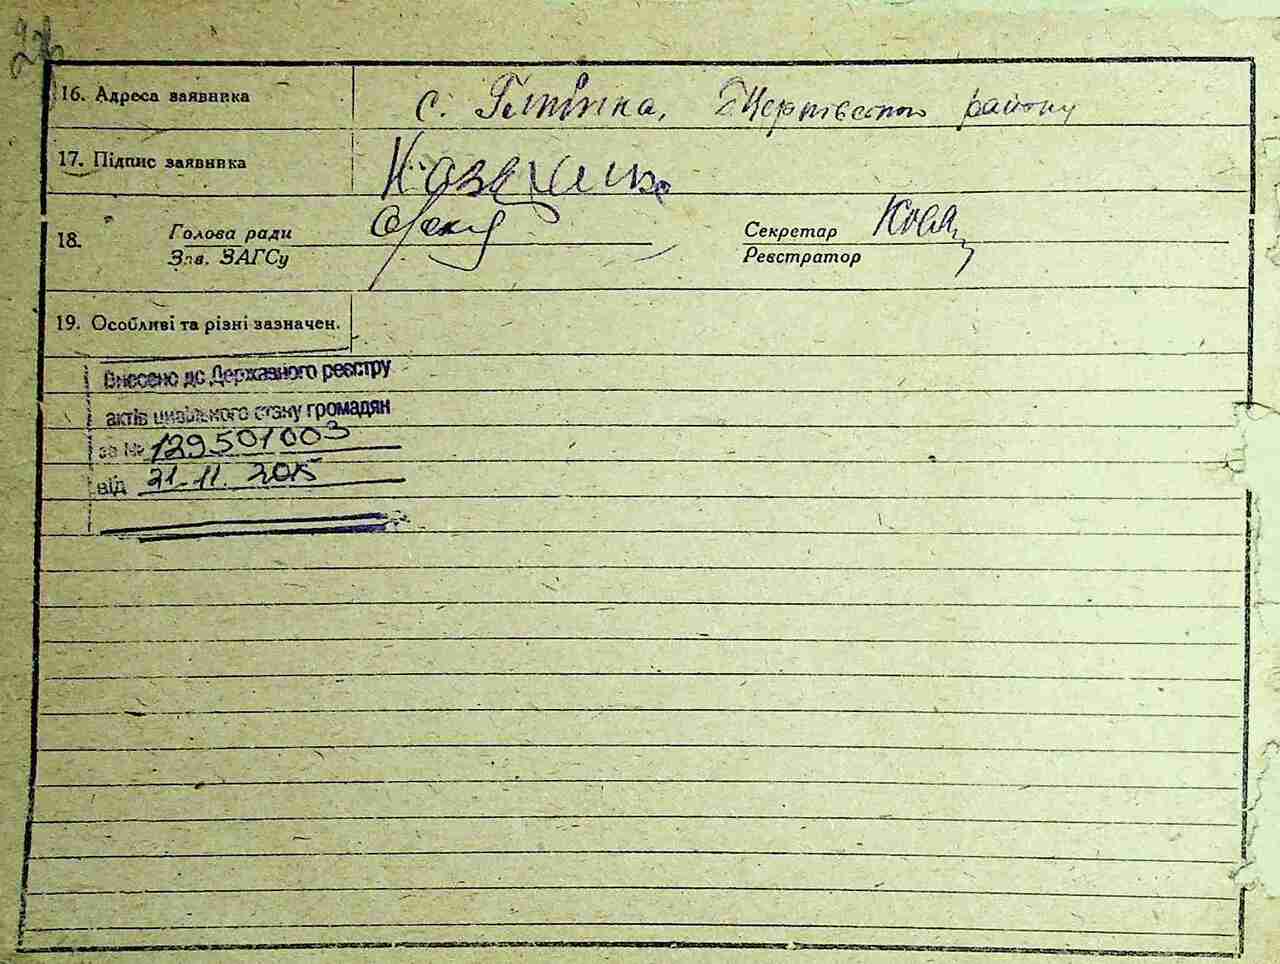 16. Адреса заявника с. району
17. Підпис заявника
18. Голова ради Секретар
Зав. ЗАГСу Реєстратор
19. Особливі та різні зазначен.
Внесено до Державного реєстру
актів цивільного стану громадян
за № 129501003
від 21.11.2015